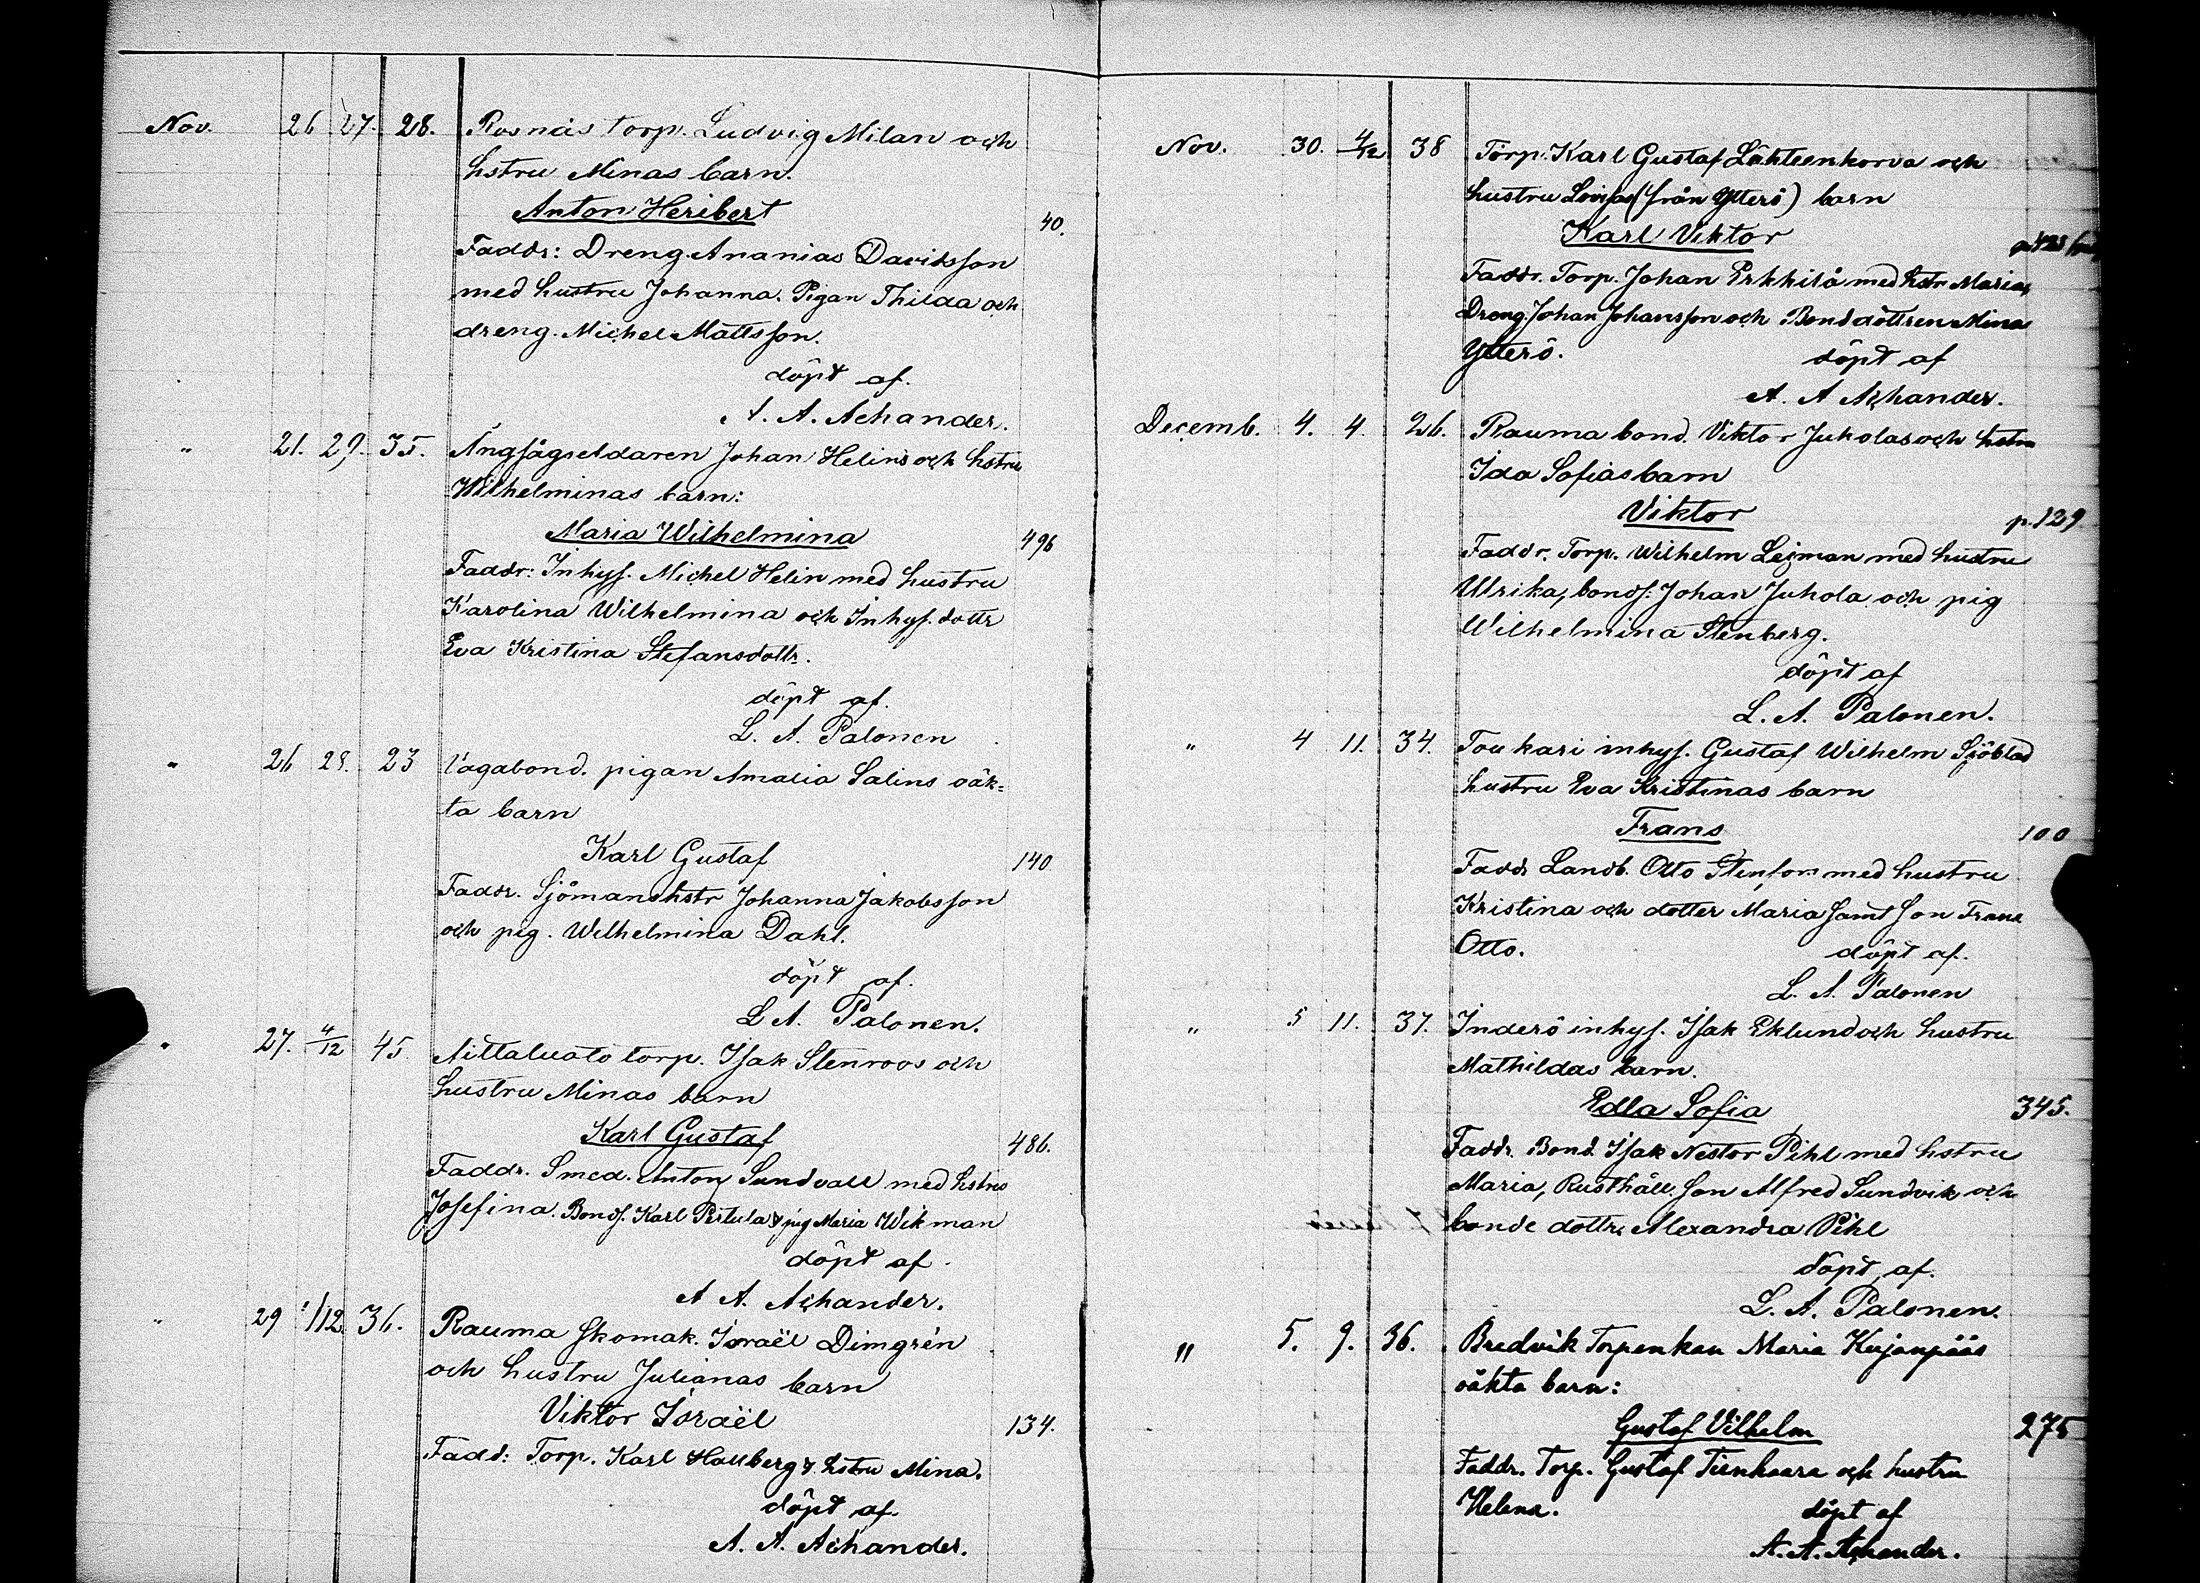 Nov. 26 27. 28. Rosnäs torp. Ludvig Milan och
hstru Minas barn.
Anton Heribert
40.
Faddr: Dreng. Ananias Davidsson
med hustru Johanna. Pigan Thilda och
dreng. Michel Mattsson.
döpt af.
A. A. Achander.
" 21. 29. 35. Ångsågseldaren Johan Helins och hstru
Wilhelminas barn:
Maria Wilhelmina
496
Faddr: Inhys. Michel Helin med hustru
Karolina Wilhelmina och Inhys. dottr
Eva Kristina Stefansdottr.
döpt af.
L. A. Palonen
" 26 28. 23 Vagabond. pigan Amalia Salins oäk=
ta barn
Karl Gustaf
140
Faddr. Sjömanshstr Johanna Jakobsson
och pig. Wilhelmina Dahl.
döpt af.
L A. Palonen.
" 27. 4/12 45. Aittaluoto torp. Isak Stenroos och
hustru Minas barn
Karl Gustaf
486.
Faddr. Smed. Anton Sundvall med hstru
Josefina. Bonds. Karl Pertula & pig Maria Wikman
döpt af.
A A. Achander.
" 29 1/12. 36. Rauma skomak. Israël Dimgrén
och hustru Julianas barn
Viktor Israël
134.
Fadd: Torp. Karl Hallberg & hstru Mina.
döpt af.
A. A. Achander.
Nov. 30. 4/12 38 Torp. Karl Gustaf Lähteenkorva och
hustru Lovisas (från Ytterö) barn
Karl Viktor
Faddr. Torp. Johan Erkkilä med hstr Maria,
Dreng. Johan Johansson och Bonddottren Mina
Ytterö. döpt af
A. A Achander.
Decemb. 4. 4. 26. Rauma bond. Viktor Juholas och hstru
Ida Sofias barn
Viktor
p. 129
Faddr. Torp. Wilhelm Lejman med hustru
Ulrika, bonds: Johan Juhola och pig
Wilhelmina Stenberg.
döpt af
L. A. Palonen.
" 4 11. 34. Toukari inhys. Gustaf Wilhelm Sjöblad
hustru Eva Kristinas barn
Frans
100
Faddr Landb. Otto Stenfors med hustru
Kristina och dotter Maria samt son Frans
Otto. döpt af.
L. A. Palonen
" 5 11. 37. Inderö inhys. Isak Eklund och hustru
Mathildas barn.
Edla Sofia
345.
Faddr. Bond. Isak Nestor Pihl med hstru
Maria, Rusthåll. son Alfred Sundvik och
bonde dottr. Alexandra Pihl
döpt af.
L. A. Palonen.
" 5. 9. 36. Bredvik Torpenkan Maria Kujanpääs
oäkta barn:
Gustaf Vilhelm
275
Faddr. Torp. Gustaf Tienhaara och hustru
Helena. döpt af
A. A. Achander.